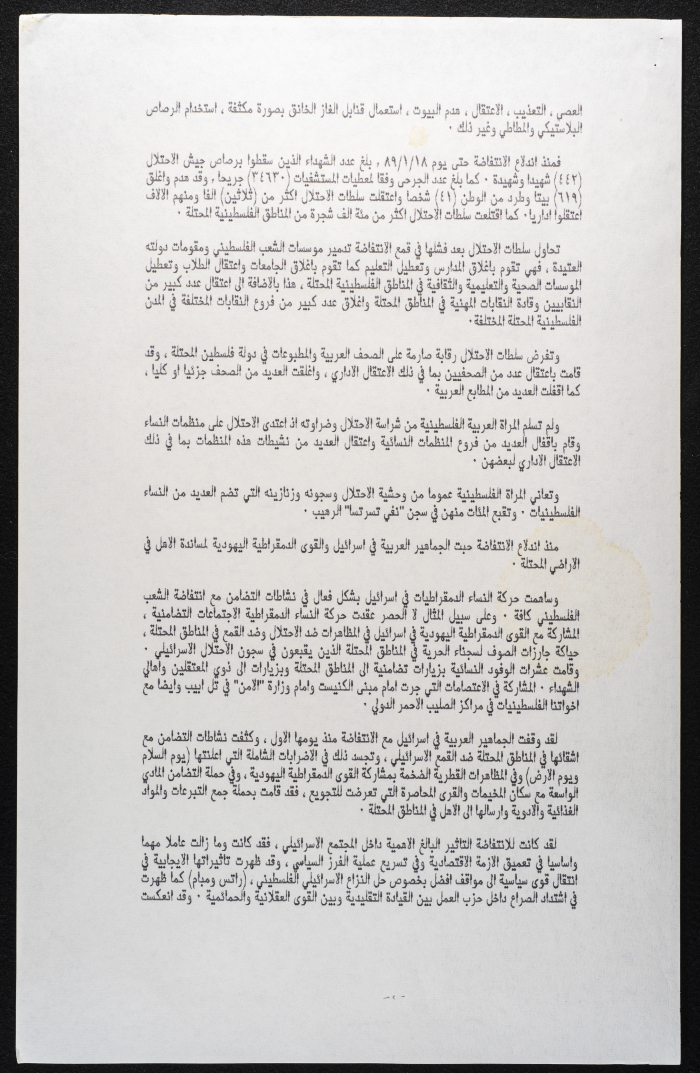 العصي ، التعذيب ، الاعتقال ، هدم البيوت ، استعمال قنابل الغاز الخانق بصورة مكثفة ، استخدام الرصاص
البلاستيكي والمطاطي وغير ذلك ٠
فمنذ اندلاع الانتفاضة حتى يوم ٨٩/١/١٨ ، بلغ عدد الشهداء الذين سقطوا برصاص جيش الاحتلال
(٤٤٢) شهيدا وشهيدة ٠ كما بلغ عدد الجرحى وفقا لمعطيات المستشفيات (٣٤٦٣٠) جريحا ، وقد هدم واغلق
(٦١٩) بيتا وطرد من الوطن (٤١) شخصا واعتقلت سلطات الاحتلال اكثر من (ثلاثين) الفا ومنهم الالاف
اعتقلوا اداريا٠ كما اقتلعت سلطات الاحتلال اكثر من مئة الف شجرة من المناطق الفلسطينية المحتلة ٠
تحاول سلطات الاحتلال بعد فشلها في قمع الانتفاضة تدمير موسسات الشعب الفلسطيني ومقومات دولته
العتيدة ، فهي تقوم باغلاق المدارس وتعطيل التعليم كما تقوم باغلاق الجامعات واعتقال الطلاب وتعطيل
الموسسات الصحية والتعليمية والثقافية في المناطق الفلسطينية المحتلة ، هذا بالاضافة الى اعتقال عدد كبير من
النقابيين وقادة النقابات المهنية في المناطق المحتلة واغلاق عدد كبير من فروع النقابات المختلفة في المدن
الفلسطينية المحتلة المختلفة٠
وتفرض سلطات الاحتلال رقابة صارمة على الصحف العربية والمطبوعات في دولة فلسطين المحتلة ، وقد
قامت باعتقال عدد من الصحفيين بما في ذلك الاعتقال الاداري ، واغلقت العديد من الصحف جزئيا او كليا ،
كما اقفلت العديد من المطابع العربية ٠
ولم تسلم المراة العربية الفلسطينية من شراسة الاحتلال وضراوته اذ اعتدى الاحتلال على منظمات النساء
وقام باقفال العديد من فروع المنظمات النسائية واعتقال العديد من نشيطات هذه المنظمات بما في ذلك
الاعتقال الاداري لبعضهن ٠
وتعاني المراة الفلسطينية عموما من وحشية الاحتلال وسجونه وزنازينه التي تضم العديد من النساء
الفلسطينيات ٠ وتقبع المئات منهن في سجن "نفي تسرتسا" الرهيب ٠
منذ اندلاع الانتفاضة حبت الجماهير العربية في اسرائيل والقوى الدمقراطية اليهودية لمساندة الاهل في
الاراضي المحتلة ٠
وساهمت حركة النساء الدمقراطيات في اسرائيل بشكل فعال في نشاطات التضامن مع انتفاضة الشعب
الفلسطيني كافة ٠ وعلى سبيل المثال لا الحصر عقدت حركة النساء الدمقراطية الاجتماعات التضامنية ،
المشاركة مع القوى الدمقراطية اليهودية في اسرائيل في المظاهرات ضد الاحتلال وضد القمع في المناطق المحتلة ،
حياكة جارزات الصوف لسجناء الحرية في المناطق المحتلة الذين يقبعون في سجون الاحتلال الاسرائيلي ٠
وقامت عشرات الوفود النسائية بزيارات تضامنية الى المناطق المحتلة وبزيارات الى ذوي المعتقلين واهالي
الشهداء ٠ المشاركة في الاعتصامات التي جرت امام مبنى الكنيست وامام وزارة "الامن" في تل ابيب وايضا مع
اخواتنا الفلسطينيات في مراكز الصليب الاحمر الدولي ٠
لقد وقفت الجماهير العربية في اسرائيل مع الانتفاضة منذ يومها الاول ، وكثفت نشاطات التضامن مع
اشقائها في المناطق المحتلة ضد القمع الاسرائيلي ، وتجسد ذلك في الاضرابات الشاملة التي اعلنتها (يوم السلام
ويوم الارض) وفي المظاهرات القطرية الضخمة بمشاركة القوى الدمقراطية اليهودية ، وفي حملة التضامن المادي
الواسعة مع سكان المخيمات والقرى المحاصرة التي تعرضت للتجويع ، فقد قامت بحملة جمع التبرعات والمواد
الغذائية والادوية وارسالها الى الاهل في المناطق المحتلة ٠
لقد كانت للانتفاضة التاثير البالغ الاهمية داخل المجتمع الاسرائيلي ، فقد كانت وما زالت عاملا مهما
واساسيا في تعميق الازمة الاقتصادية وفي تسريع عملية الفرز السياسي ، وقد ظهرت تاثيراتها الايجابية في
انتقال قوى سياسية الى مواقف افضل بخصوص حل النزاع الاسرائيلي الفلسطيني ، (راتس ومبام) كما ظهرت
في اشتداد الصراع داخل حزب العمل بين القيادة التقليدية وبين القوى العقلانية والحمائمية ٠ وقد انعكست